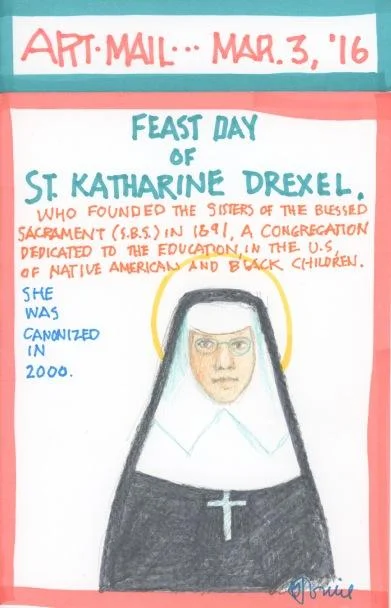 ART·MAIL··· MAR. 3, '16
FEAST DAY
OF
ST. KATHARINE DREXEL.
WHO FOUNDED THE SISTERS OF THE BLESSED
SACRAMENT (S.B.S.) IN 1891, A CONGREGATION
DEDICATED TO THE EDUCATION, IN THE U.S,
OF NATIVE AMERICAN AND BLACK CHILDREN.
SHE
WAS
CANONIZED
IN
2000.